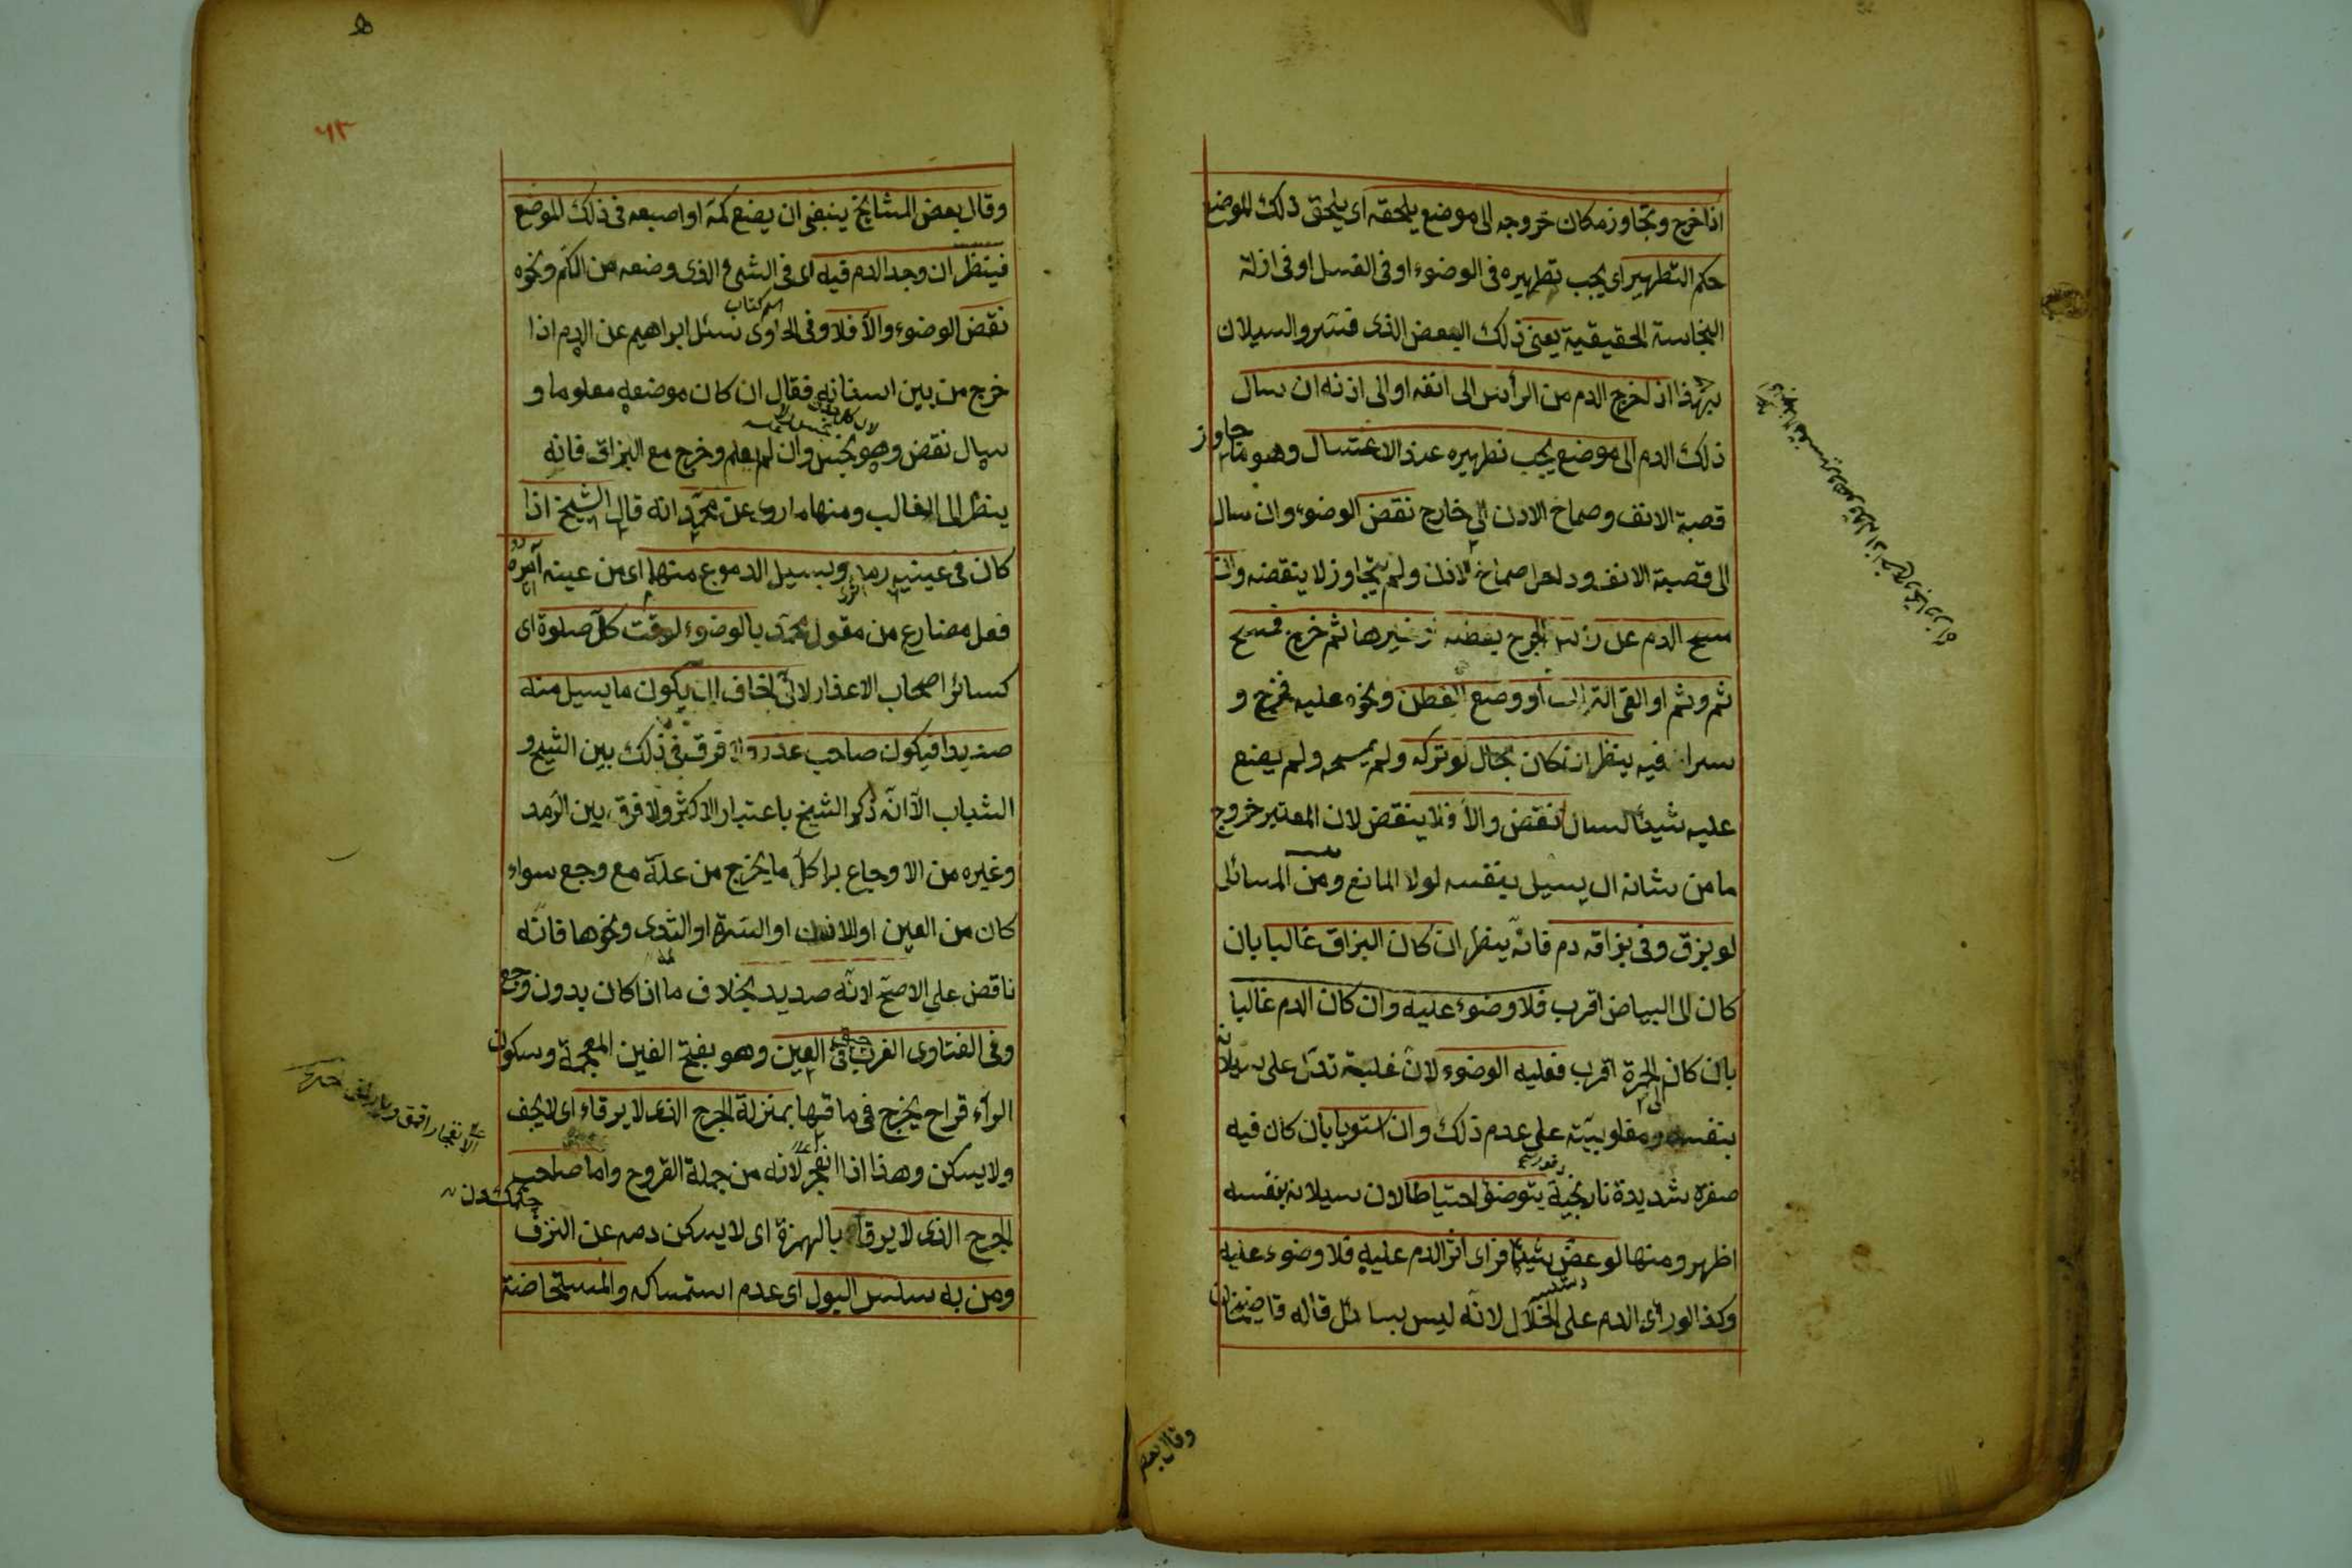 اذا خرج وتجاوز مكان خروجه الى موضع يلحقه اى يلحق ذلك الموضع
حكم التطهير اى يجب تطهيره فى الوضوء او فى الغسل او فى ازلة
النجاسة الحقيقية يعنى ذلك البعض الذى فسّر والسيلان
بهذا اذا خرج الدم من الرأس الى انفه او الى اذنه ان سال
ذلك الدم الى موضع يجب تطهيره عند الاغتسال وهو ما جاوز
قصبة الانف وصماخ الاذن الى خارج نقض الوضوء وان سال
الى قصبة الانف وداخل صماخ الاذن ولم يتجاوز لا ينقضه وان
مسح الدم عن رأس الجرح بقطنة او غيرها ثم خرج فمسح
ثم وثم او القى التراب او وضع القطن ونحوه عليه فخرج و
سرا فيه ينظر ان كان بحال لو تركه ولم يمسحه ولم يضع
عليه شيئا لسال نقض والّا فلا ينقض لان المعتبر خروج
ما من شانه ان يسيل بنفسه لولا المانع ومن المسائل
لو بزق وفى بزاقه دم فانّه ينظر ان كان البزاق غالبا بان
كان الى البياض اقرب فلا وضوء عليه وان كان الدم غالبا
بان كان الى الحمرة اقرب فعليه الوضوء لانّ غلبته تدلّ على سيلانه
بنفسه ومغلوبيّته على عدم ذلك وان استويا بان كان فيه
صفرة شديدة نارنجية يتوضئ احتياطا لان سيلانه بنفسه
اظهر ومنها لو عضّ شيئا فرأى اثر الدم عليه فلا وضوء عليه
وكذا لو رأى الدم على الخلال لانّه ليس بسائل قاله قاضيخان
وقال بعض
٦٣
وقال بعض المشايخ ينبغى ان يضع كمّه او اصبعه فى ذلك الموضع
فينظر ان وجد الدم فيه اى فى الشئ الذى وضعه من الكم ونحوه
اسم كتاب
نقض الوضوء والّا فلا وفى الحاوى سئل ابراهيم عن الدم اذا
خرج من بين اسنانه فقال ان كان موضعه معلوما و
سال نقض وهو نجس وان لم يعلم وخرج مع البزاق فانه
ينظر الى الغالب ومنها ما روى عن محمّد انه قال الشيخ اذا
كان فى عينيه رمد ويسيل الدموع منهما اى من عينه آمره
فعل مضارع من مقول محمّد بالوضوء لوقت كلّ صلوة اى
كسائر اصحاب الاعذار لانّى اخاف ان يكون ما يسيل منه
صديدا فيكون صاحب عذر ولا فرق فى ذلك بين الشيخ و
الشباب الّا انّه ذكر الشيخ باعتبار الاكثر ولا فرق بين الرّمد
وغيره من الاوجاع بل كلّ ما يخرج من علّة مع وجع سواء
كان من العين او الاذن او السّرة او الثدى ونحوها فانّه
ناقض على الاصحّ لانّه صديد بخلاف ما اذا كان بدون وجع
وفى الفتاوى الغرب فى العين وهو بفتح الغين المعجمة وسكون
الرآء قراح يخرج فى ماقيها بمنزلة الجرح الذى لا يرقاء اى لا يجف
ولا يسكن وهذا اذا انفجر لانه من جملة القروح واما صاحب
الجرح الذى لا يرقاء بالهمزة اى لا يسكن دمه عن النزف
ومن به سلس البول اى عدم استمساكه والمستحاضة